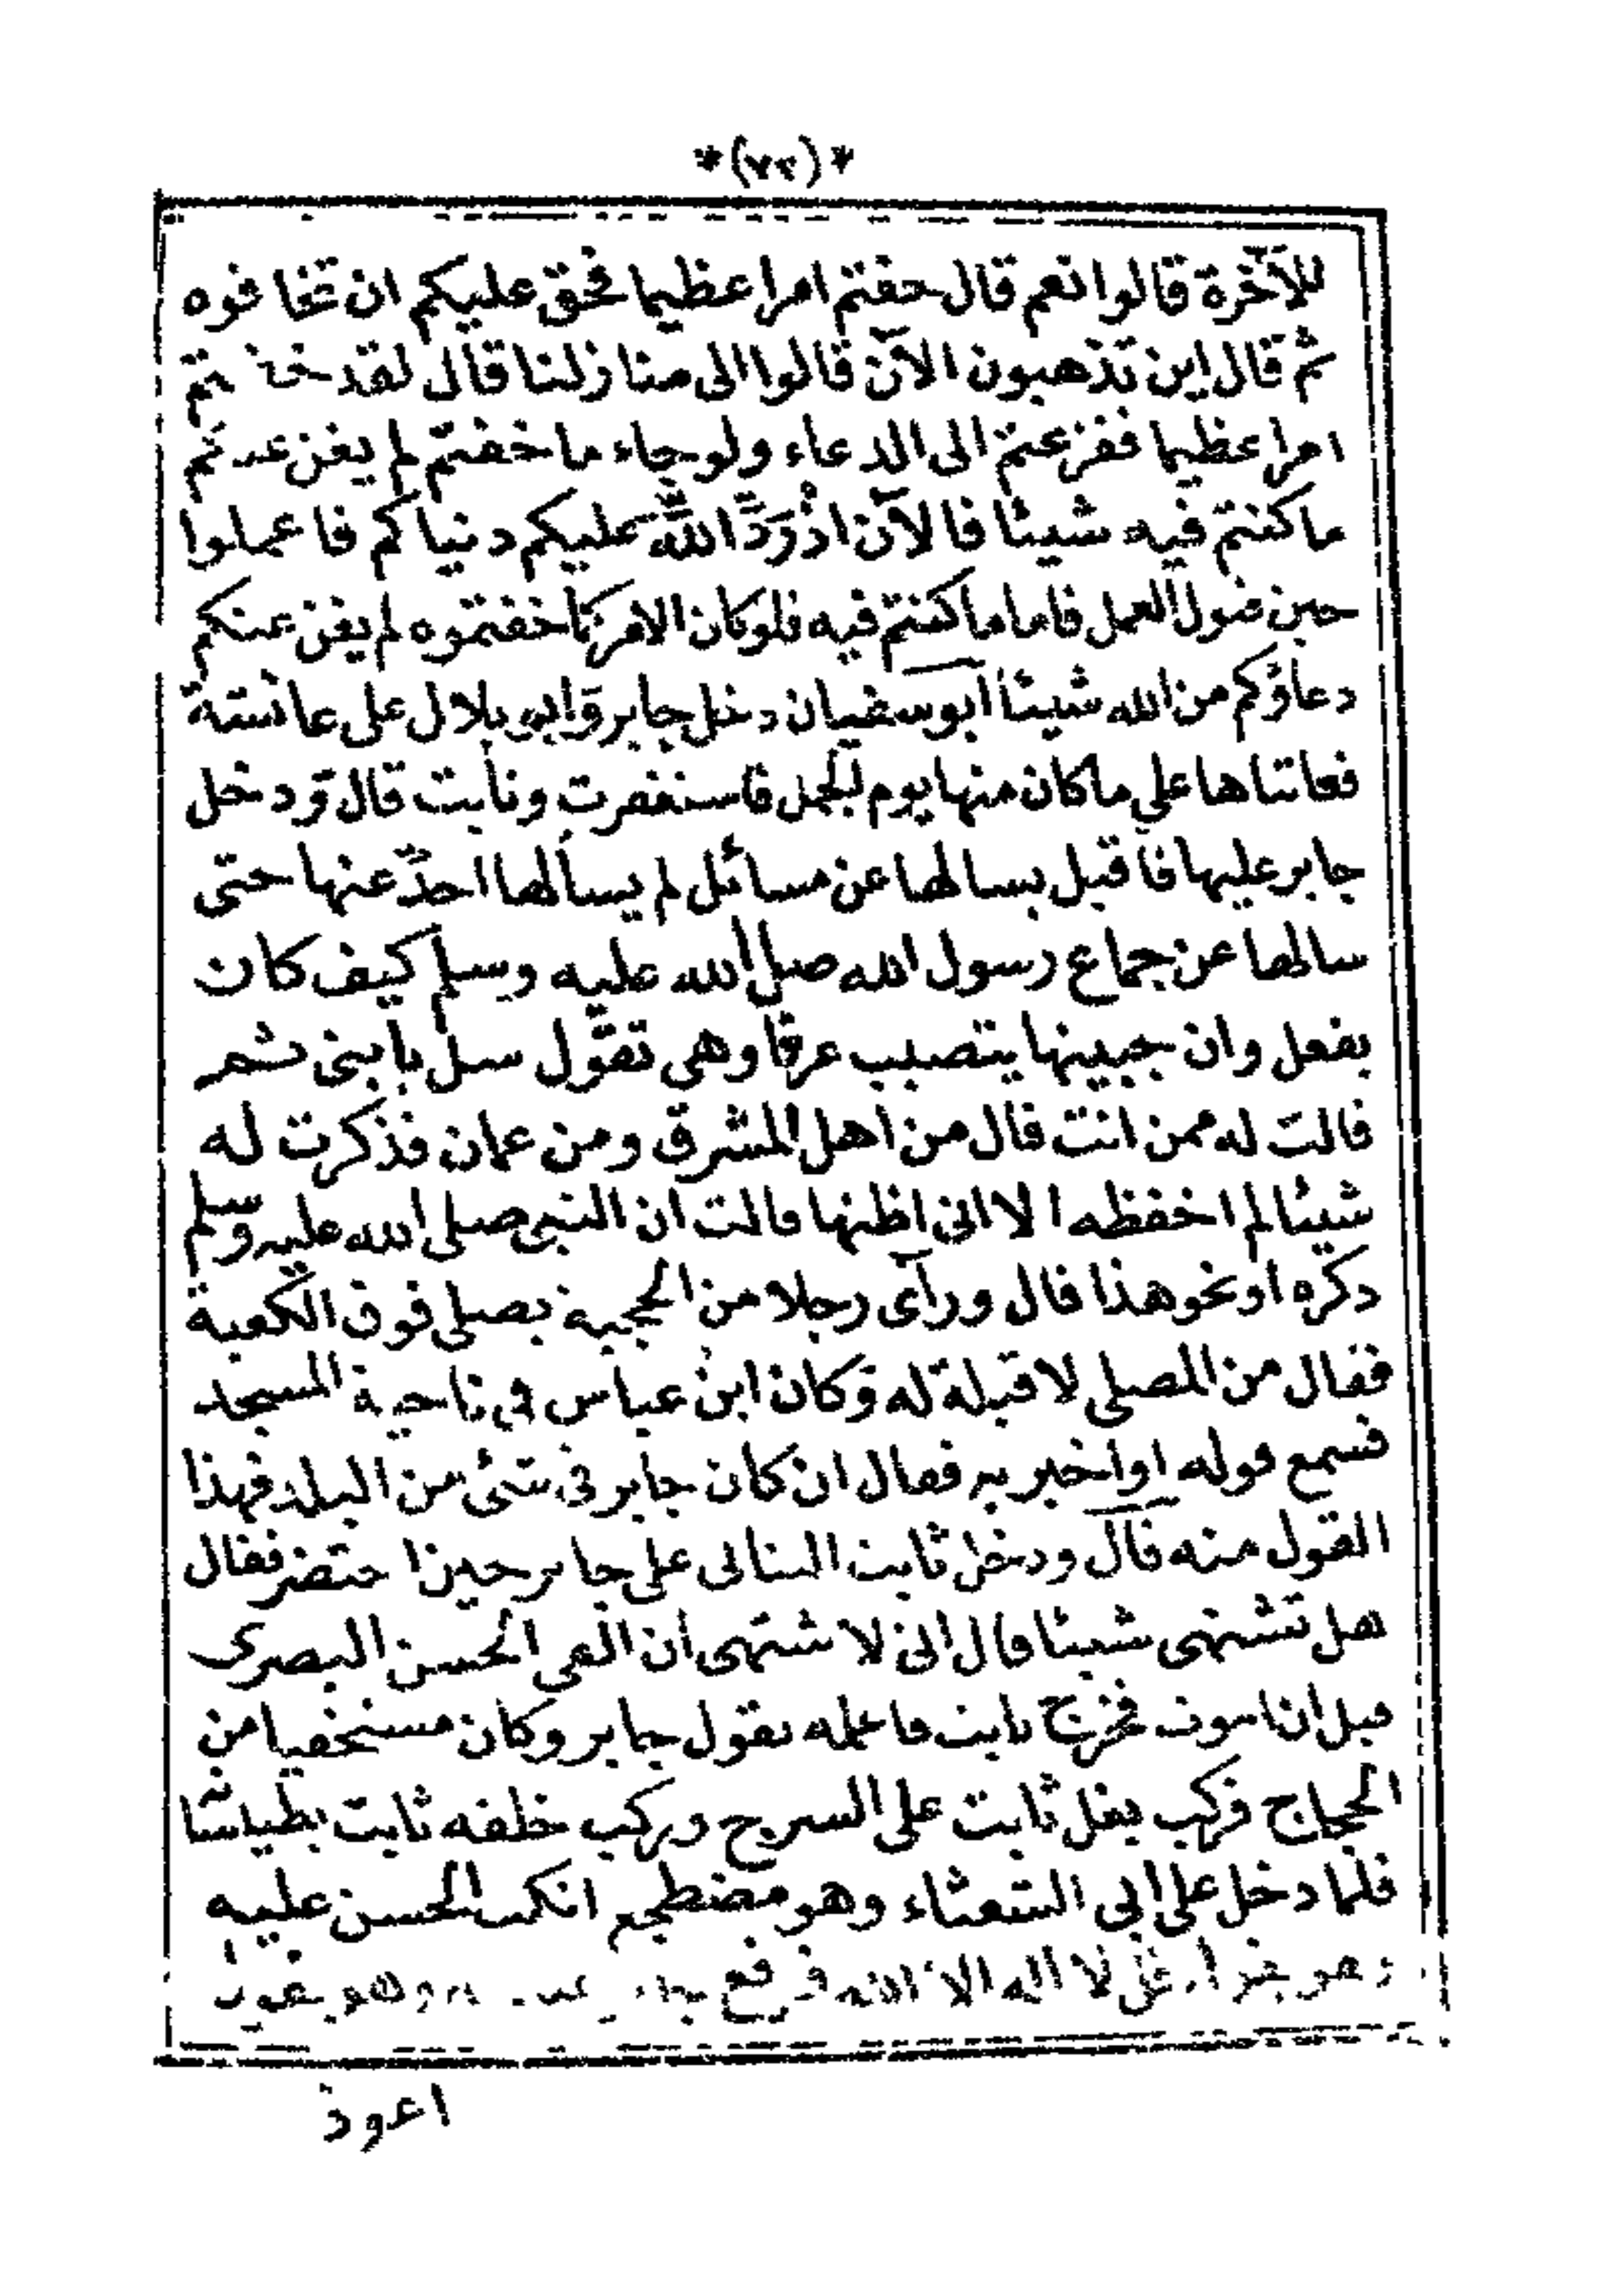 *(٧٢)*
للآخرة قالوا نعم قال خفتم امرا عظيما فحق عليكم ان تخافوه
ثم قال اين تذهبون الآن قالوا الى منازلنا قال لقد خفتم
امرا عظيما ففزعتم الى الدعاء ولو جاء ما خفتم لم يغن عنكم
ما كنتم فيه شيئا فالآن اذ رَدَّ اللَّه عليكم دنياكم فاعملوا
حين قبول العمل فاما ما كنتم فيه فلو كان الامر كما خفتموه لم يغن عنكم
دعاؤكم من الله شيئا ابو سفيان دخل جابر وابو بلال على عائشة
فعاتباها على ما كان منها يوم الجمل فاستغفرت وتابت قال ودخل
جابر عليها فاقبل يسالها عن مسائل لم يسألها احدٌ عنها حتى
سالها عن جماع رسول الله صلى الله عليه وسلم كيف كان
يفعل وان جبينها يتصبب عرقا وهي تقول سل يا بنى ثم
قالت له ممن انت قال من اهل المشرق ومن عمان فذكرت له
شيئا لم احفظه الا انى اظنها قالت ان النبي صلى الله عليه وسلم
ذكره او نحو هذا قال ورآى رجلا من الحجبة يصلى فوق الكعبة
فقال من المصلى لا قبلة له وكان ابن عباس في ناحية المسجد
فسمع قوله او اخبر به فقال ان كان جابر في شئ من البلد فهذا
القول منه قال ودخل ثابت البناني على جابر حين احتضر فقال
هل تشتهى شيئا قال انى لا شتهى ان القى الحسن البصرى
قبل ان اموت فخرج ثابت فاعلمه بقول جابر وكان مستخفيا من
الحجاج فركب بغل ثابت على السرج وركب خلفه ثابت
فلما دخل على ابى الشعثاء وهو مضطجع انكب الحسن عليه
وهو يقول قل لا اله الا الله فرفع وهو يقول
اعوذ